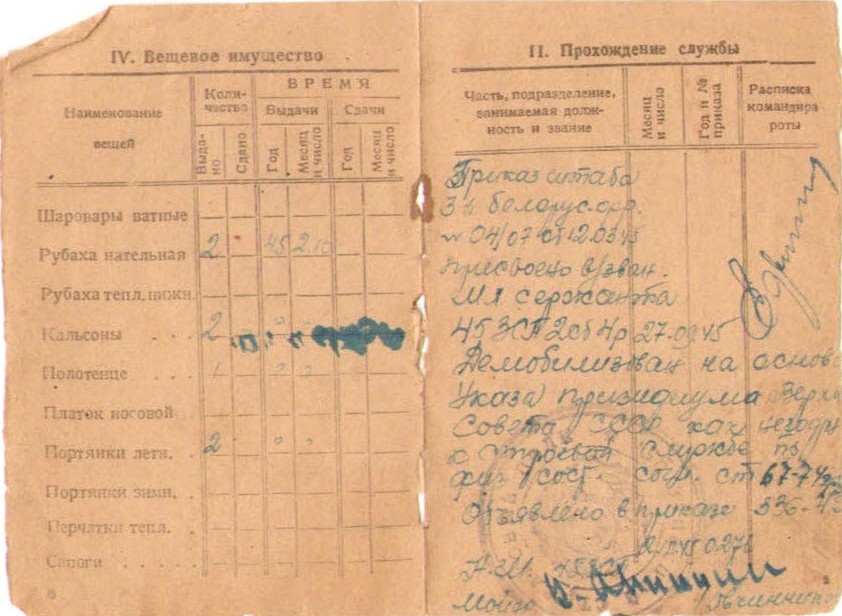 IV. Вещевое имущество
Наименование вещей
Количество
ВРЕМЯ
Выдачи
Сдачи
Выдано
Сдано
Год
Месяц и число
Год
Месяц и число
Шаровары ватные
Рубаха нательная 2 45 2.10
Рубаха тепл. нижн.
Кальсоны . . . 2
Полотенце . . . 1
Платок носовой
Портянки летн. . 2
Портянки зимн. .
Перчатки тепл. .
Сапоги . . .
II. Прохождение службы
Часть, подразделение, занимаемая должность и звание
Месяц и число
Год и № приказа
Расписка командира роты
Приказ штаба
3 белорус.
04/07 от 12.03.45
присвоено в/зван.
Мл сержанта
45 ЗСП 2сб 4р 27-09.45
Демобилизован на основ
Указа призидиума Верх
Совета СССР как негодн
к строевой службе по
физ сост. согл. ст 67-74
Объявлено в приказе 336-45